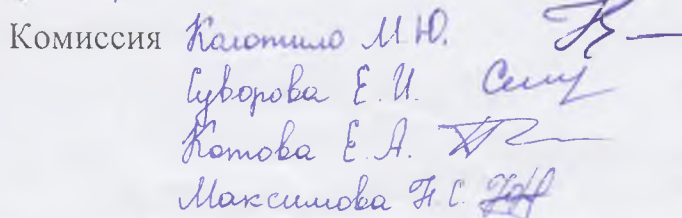 Комиссия Коломило М.Ю.
Суворова Е.И.
Котова Е.А.
Максимова Н.С.